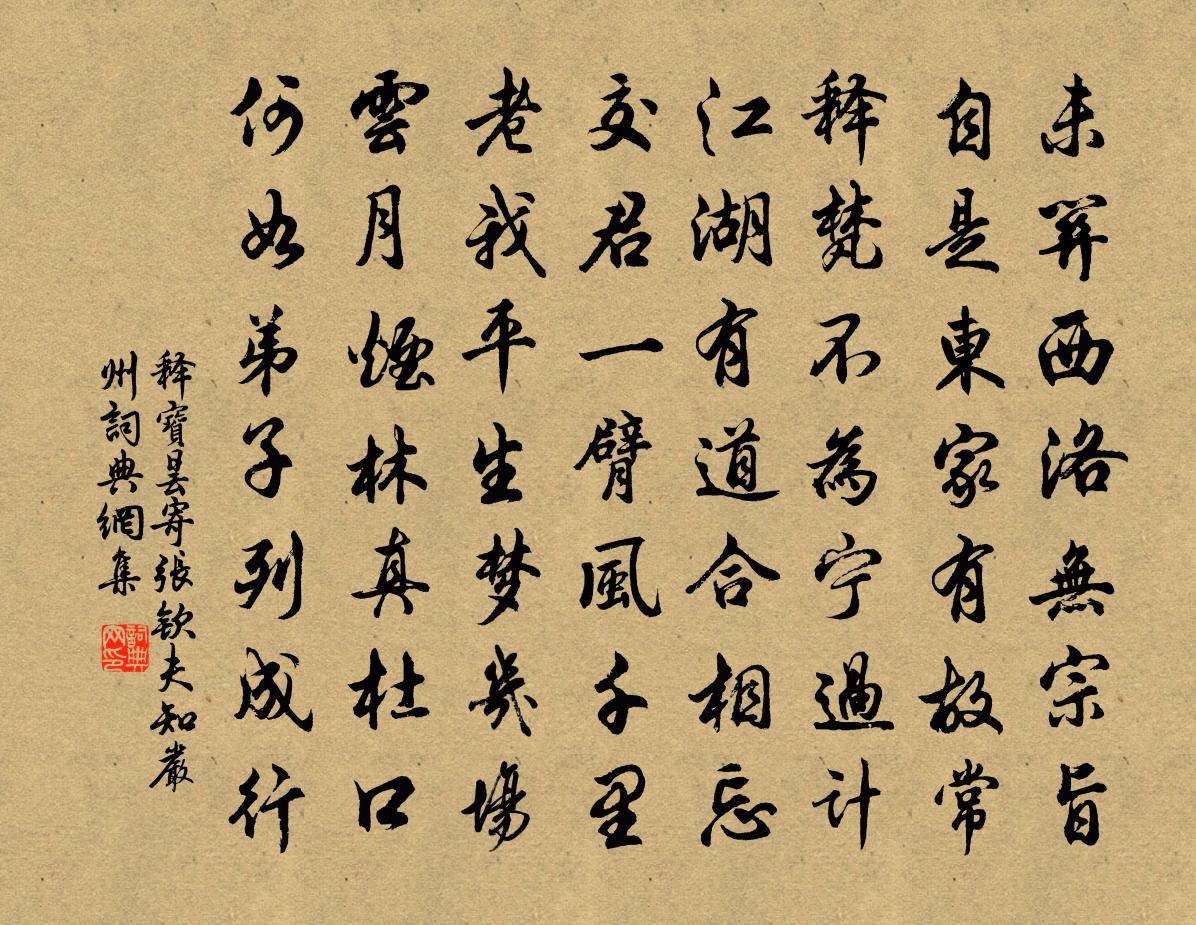 未羿西洛無宗旨
自是東家有故常
释梵不為宁過計
江湖有道合相忘
交君一臂風千里
老我平生梦幾場
雲月煙林真杜口
何如弟子列成行
释寶曇寄張欽夫知嚴
州詞典網集
詞典网印